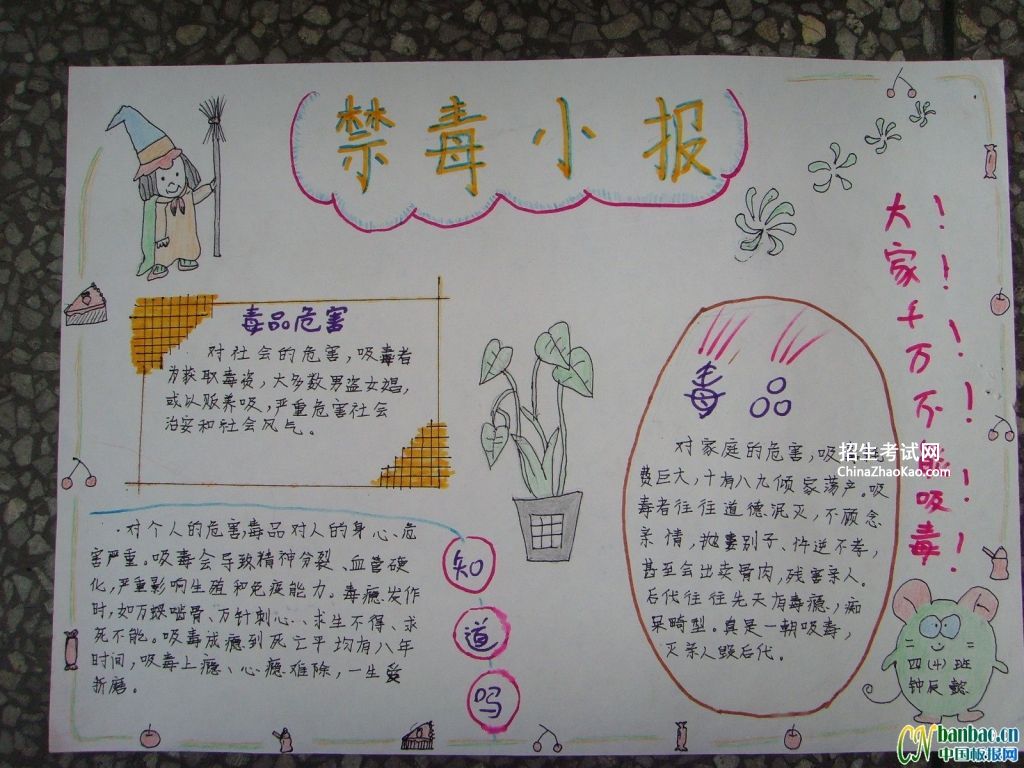 禁毒小报
毒品危害
对社会的危害，吸毒者
为获取毒资，大多数男盗女娼，
或以贩养吸，严重危害社会
治安和社会风气。
对个人的危害毒品对人的身心、危
害严重。吸毒会导致精神分裂、血管硬
化，严重影响生殖和免疫能力。毒瘾发作
时，如万蚁啮骨、万针刺心、求生不得、求
死不能。吸毒成瘾到死亡平均有八年
时间，吸毒上瘾、心瘾难除，一生受
折磨。
知
道
吗
毒品
对家庭的危害，吸
费巨大，十有八九倾家荡产。吸
毒者往往道德泯灭，不顾念
亲情，抛妻别子、忤逆不孝，
甚至会出卖骨肉，残害亲人。
后代往往先天有毒瘾，痴
呆畸型。真是一朝吸毒，
灭亲人毁后代。
大家千万不能吸毒！！！！！！
四(4)班
钟辰懿
招生考试网
ChinaZhaoKao.com
CN banbao.cn
中国板报网